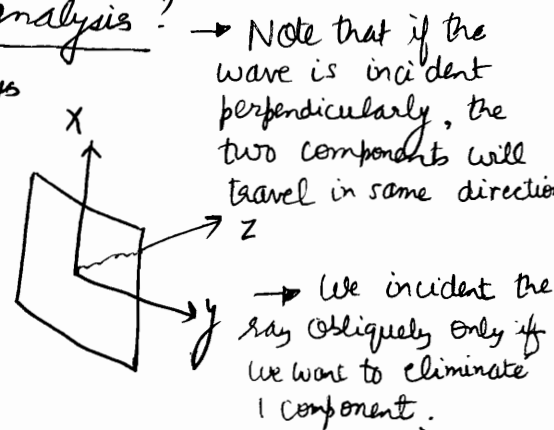 nalysis ? → Note that if the
wave is incident
perpendicularly, the
two components will
travel in same directio
X
Z
y
→ We incident the
ray obliquely only if
we want to eliminate
1 component.